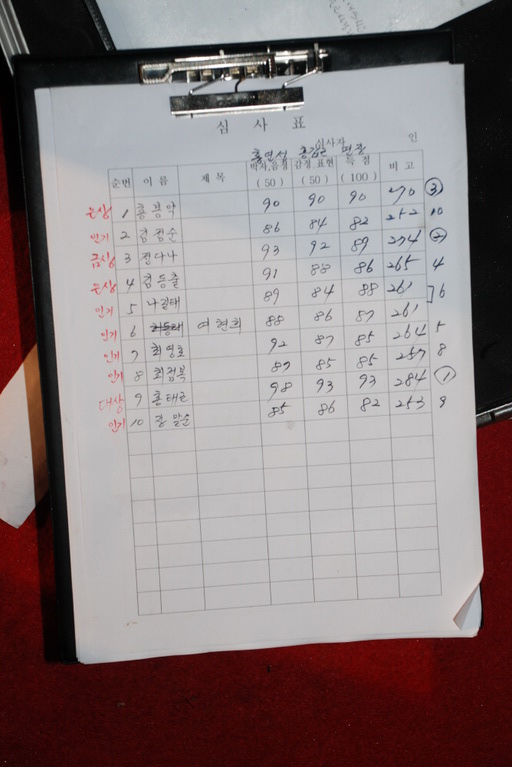 심 사 표
심사자 인
홍 면장
순번 이 름 제 목 박자,음정 (50) 감정,표현 (50) 득 점 (100) 비 고
은상 1 90 90 90 270 ③
인기 2 김점순 86 84 82 252 10
금상 3 전다나 93 92 89 274 ②
은상 4 김동출 91 88 86 265 4
인기 5 나길태 89 84 88 261 ] 6
인기 6 여현희 88 86 87 261
인기 7 최영호 92 87 85 264 5
인기 8 최점복 87 85 85 257 8
대상 9 홍태근 98 93 93 284 ①
인기 10 말순 85 86 82 253 9